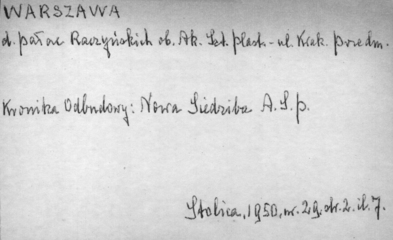 WARSZAWA
d. pałac Raczyńskich ob. Ak. Szt. plast. - ul. Krak. przedm.
Kronika Odbudowy: Nowa Siedziba A.S.p.
Stolica, 1950, nr. 29. str. 2. il. 7.